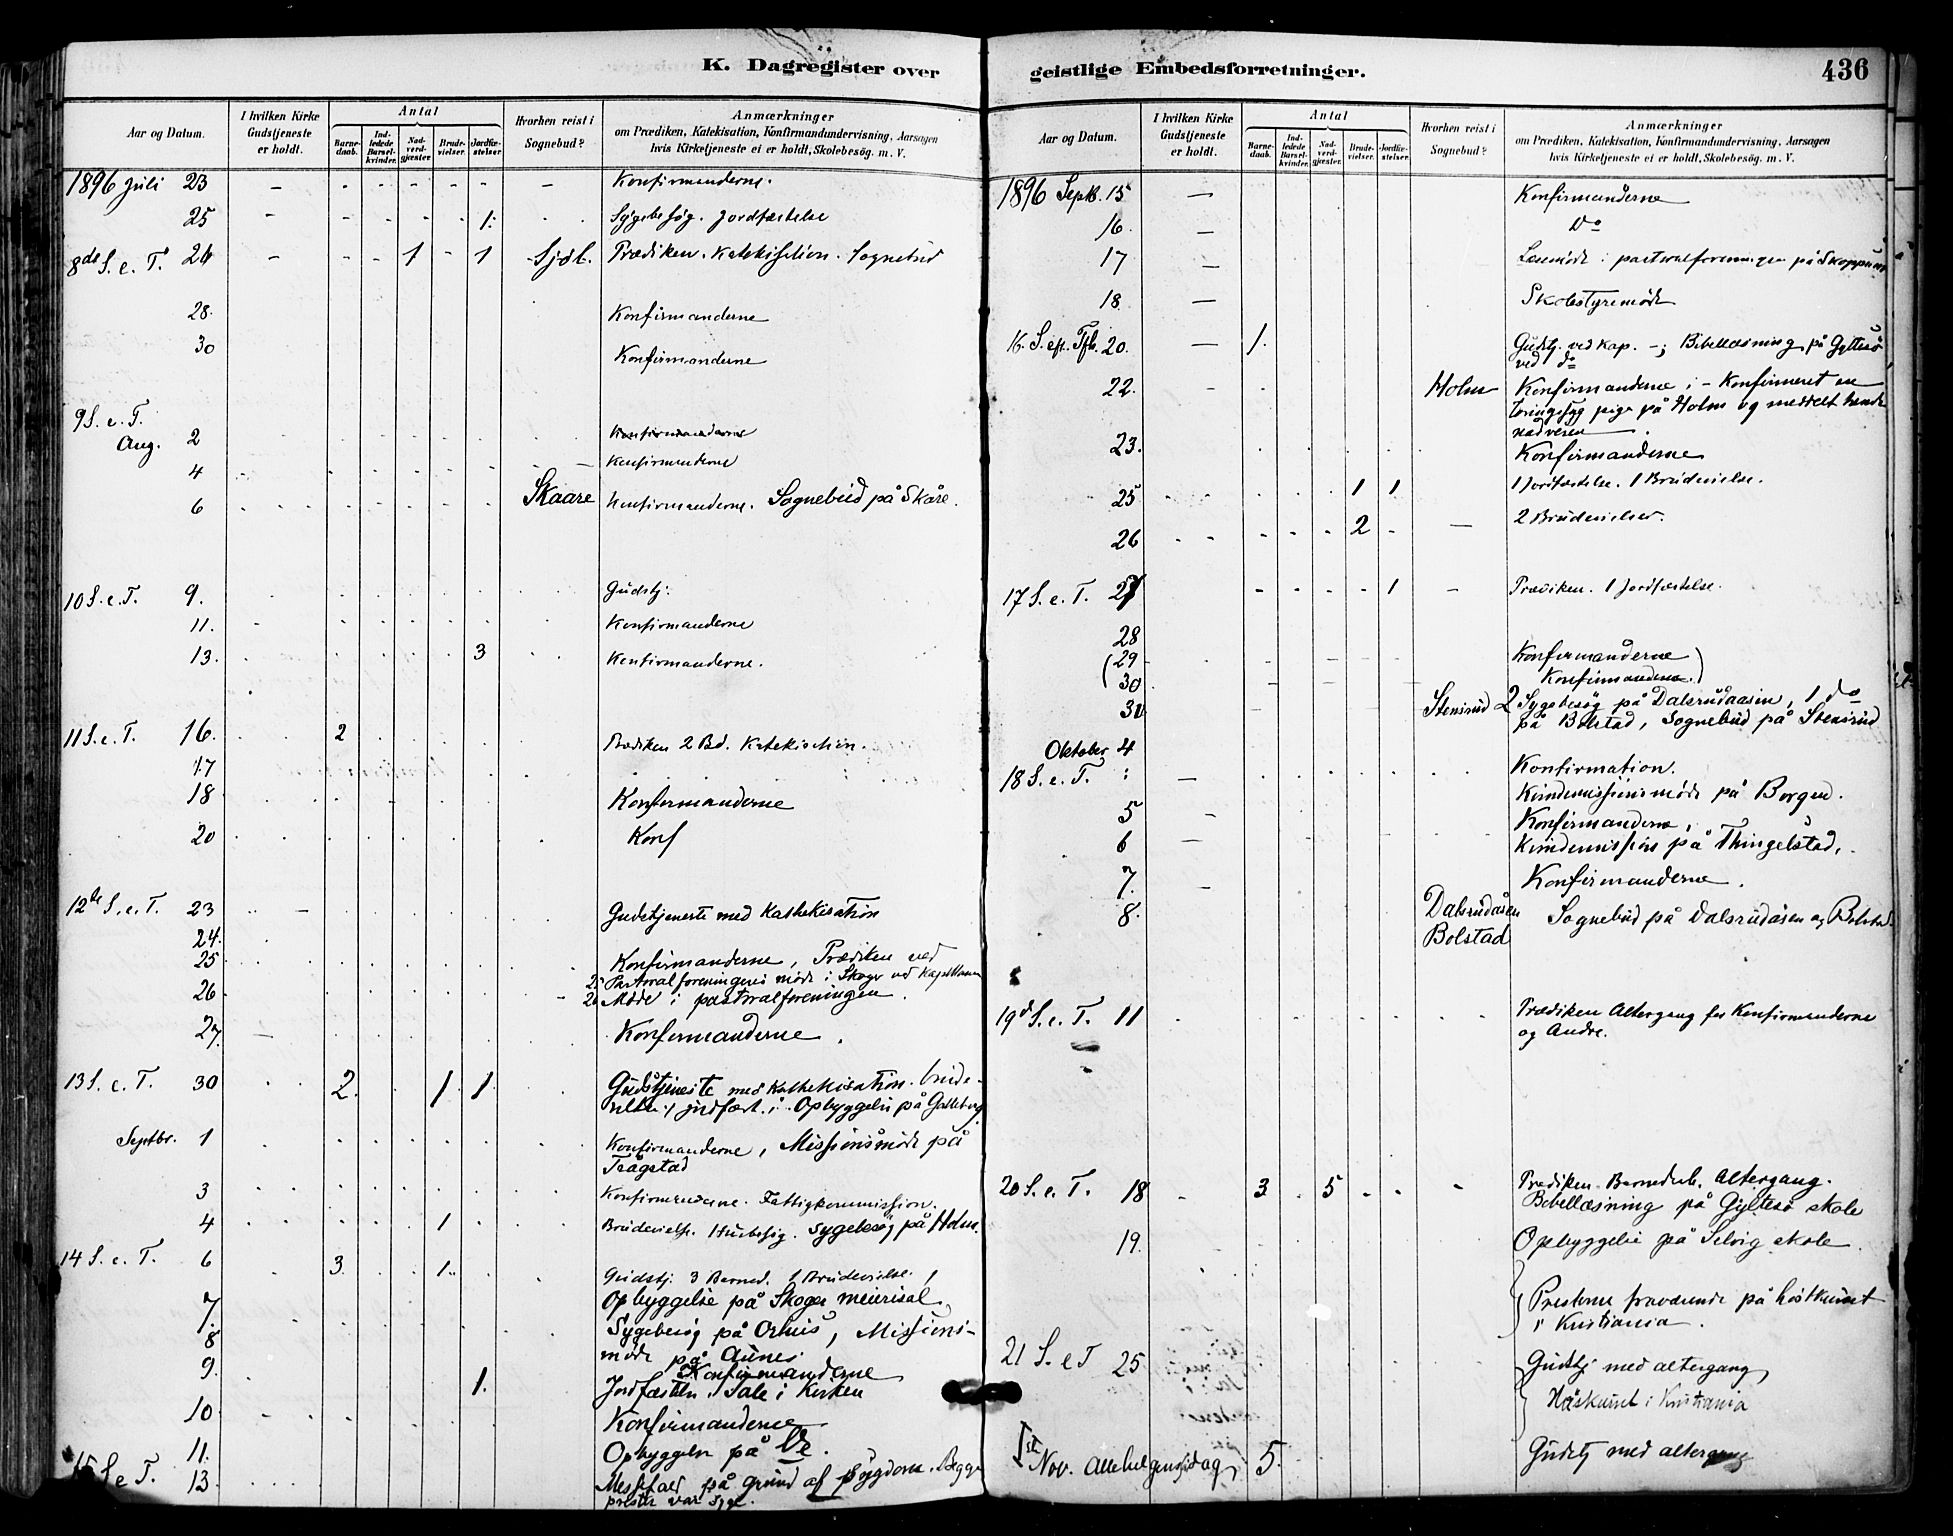 K. Dagregister over
Aar og Datum.
I hvilken Kirke Gudstjeneste er holdt.
Antal
Barnedaab.
Indledede Barselkvinder.
Nadverdgjæster
Brudevielser.
Jordfæstelser.
Hvorhen reist i Sognebud?
Anmærkninger
om Prædiken, Katekisation, Konfirmandundervisning, Aarsagen
hvis Kirketjeneste ei er holdt, Skolebesøg. m. V.
1896 Juli 23 Konfirmanderne.
25 1. Sygebesøg. Jordfæstelse
8de S. e. T. 26 1 1 Prædiken. Katekisation. Sognebud
28. Konfirmanderne
30 Konfirmanderne
9 S. e. T.
Aug. 2 Konfirmanderne
4 Konfirmanderne
6 Skaare Konfirmanderne. Sognebud på Skåre.
10 S. e. T. 9. Gudstj.
11. Konfirmanderne
13. 3 Konfirmanderne.
11 S. e. T. 16. 2 Prædiken 2 Bd. Katekisation.
17
18 Konfirmanderne
20 Konf
12te S. e. T. 23 Gudstjeneste med Kathekisation
24.
25 Konfirmanderne, Prædiken ved
25 Pastoralforeningens møde i Skoger ved Kapellanen
26 26 Møde i pastoralforeningen.
27. Konfirmanderne.
13 S. e. T. 30 2. 1 1 Gudstjeneste med Kathekisation. brude-
vielse. 1 jordfæst. Opbyggelse på Galleberg
Septbr. 1 Konfirmanderne, Missionsmøde på
Tragstad
3 Konfirmanderne. Fattigkommission.
4 1 Brudevielse. Husbesøg. Sygebesøg på Holm.
14 S. e. T. 6 3. 1. Gudstj. 3 Barned. 1 Brudevielse.
Opbyggelse på Skoger meierisal
7. Sygebesøg på Orhus, Missions-
8 møde på Aunes
9. Konfirmanderne
1. Jordfæstelse. Tale i Kirken
10 Konfirmanderne
11. Opbyggelse på Ve.
15 S e T. 13 Messefald på grund af sygdom. Begge
prester var syge.
geistlige Embedsforretninger.
436
Aar og Datum.
I hvilken Kirke Gudstjeneste er holdt.
Antal
Barnedaab.
Indledede Barselkvinder.
Nadverdgjæster.
Brudevielser.
Jordfæstelser.
Hvorhen reist i Sognebud?
Anmærkninger
om Prædiken, Katekisation, Konfirmandundervisning, Aarsagen
hvis Kirketjeneste ei er holdt, Skolebesøg. m. V.
1896 Septb. 15 Konfirmanderne
16. Do
17 Læsemøde i pastoralforeningen på Skoppum
18 Skolestyremøde
16. S. eft. Tfh. 20. 1. Gudstj. ved kap. -; Bibellæsning på Gyltesø
ved do
22. Holm Konfirmanderne; - Konfirmeret en
tæringssyg pige på Holm og meddelt hende
nadveren.
23. Konfirmanderne
25 1 1 1 Jordfæstelse. 1 Brudevielse.
26 2 2 Brudevielser.
17 S. e. T. 27 1 Prædiken. 1 Jordfæstelse.
28
29 Konfirmanderne
30 Konfirmanderne.
Stensrud 2 Sygebesøg på Dalsrudaasen, 1 do
på Bolstad, Sognebud på Stensrud
Oktober 4
18 S. e. T. Konfirmation.
Kvindemissionsmøde på Borgen.
5 Konfirmanderne,
6 Kvindemission på Thingelstad.
7. Konfirmanderne.
8. Dalsrudåsen Sognebud på Dalsrudåsen og Bolstad.
Bolstad
19de S. e. T. 11 Prædiken Altergang for Konfirmanderne
og Andre.
20 S. e. T. 18 3 5 Prædiken. Barnedaab. Altergang.
Bibellæsning på Gyltesø skole
19. Opbyggelse på Selvig skole.
Presterne fraværende på høstkurset
i Kristiania.
21 S. e T 25 Gudstj med altergang
Høstkurset i Kristiania
1ste Nov. Allehelgensdag, 5. Gudstj med altergang